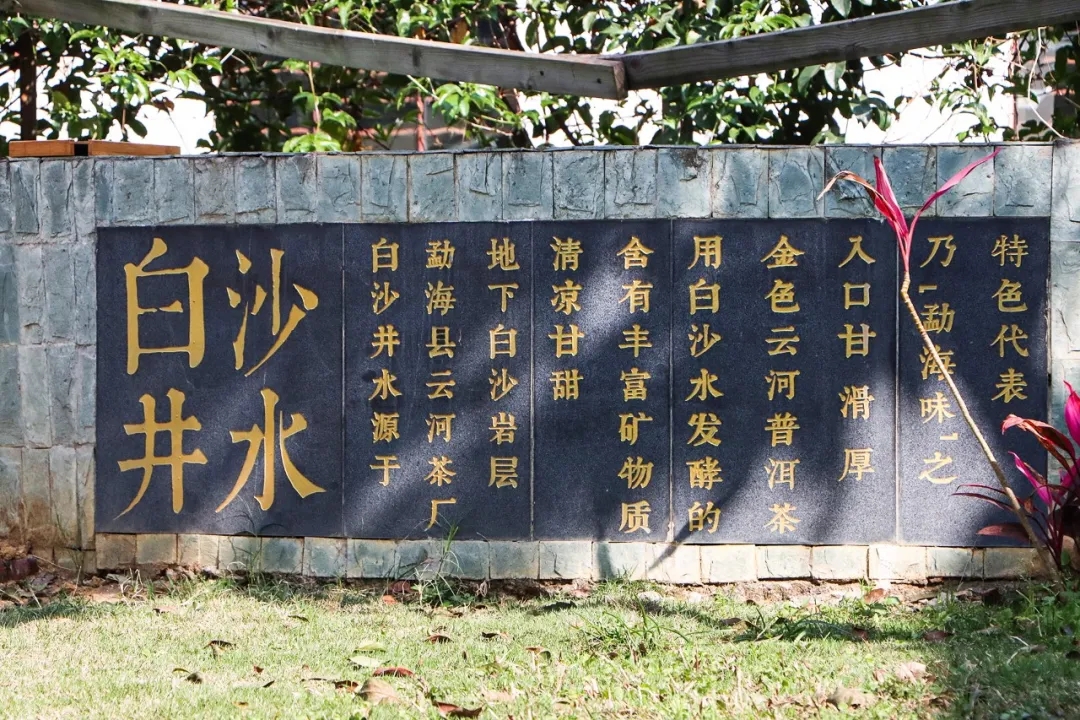 白沙
井水
白沙井水源于
勐海县云河茶厂
地下白沙岩层
清凉甘甜
含有丰富矿物质
用白沙水发酵的
金色云河普洱茶
入口甘滑厚
乃「勐海味」之
特色代表